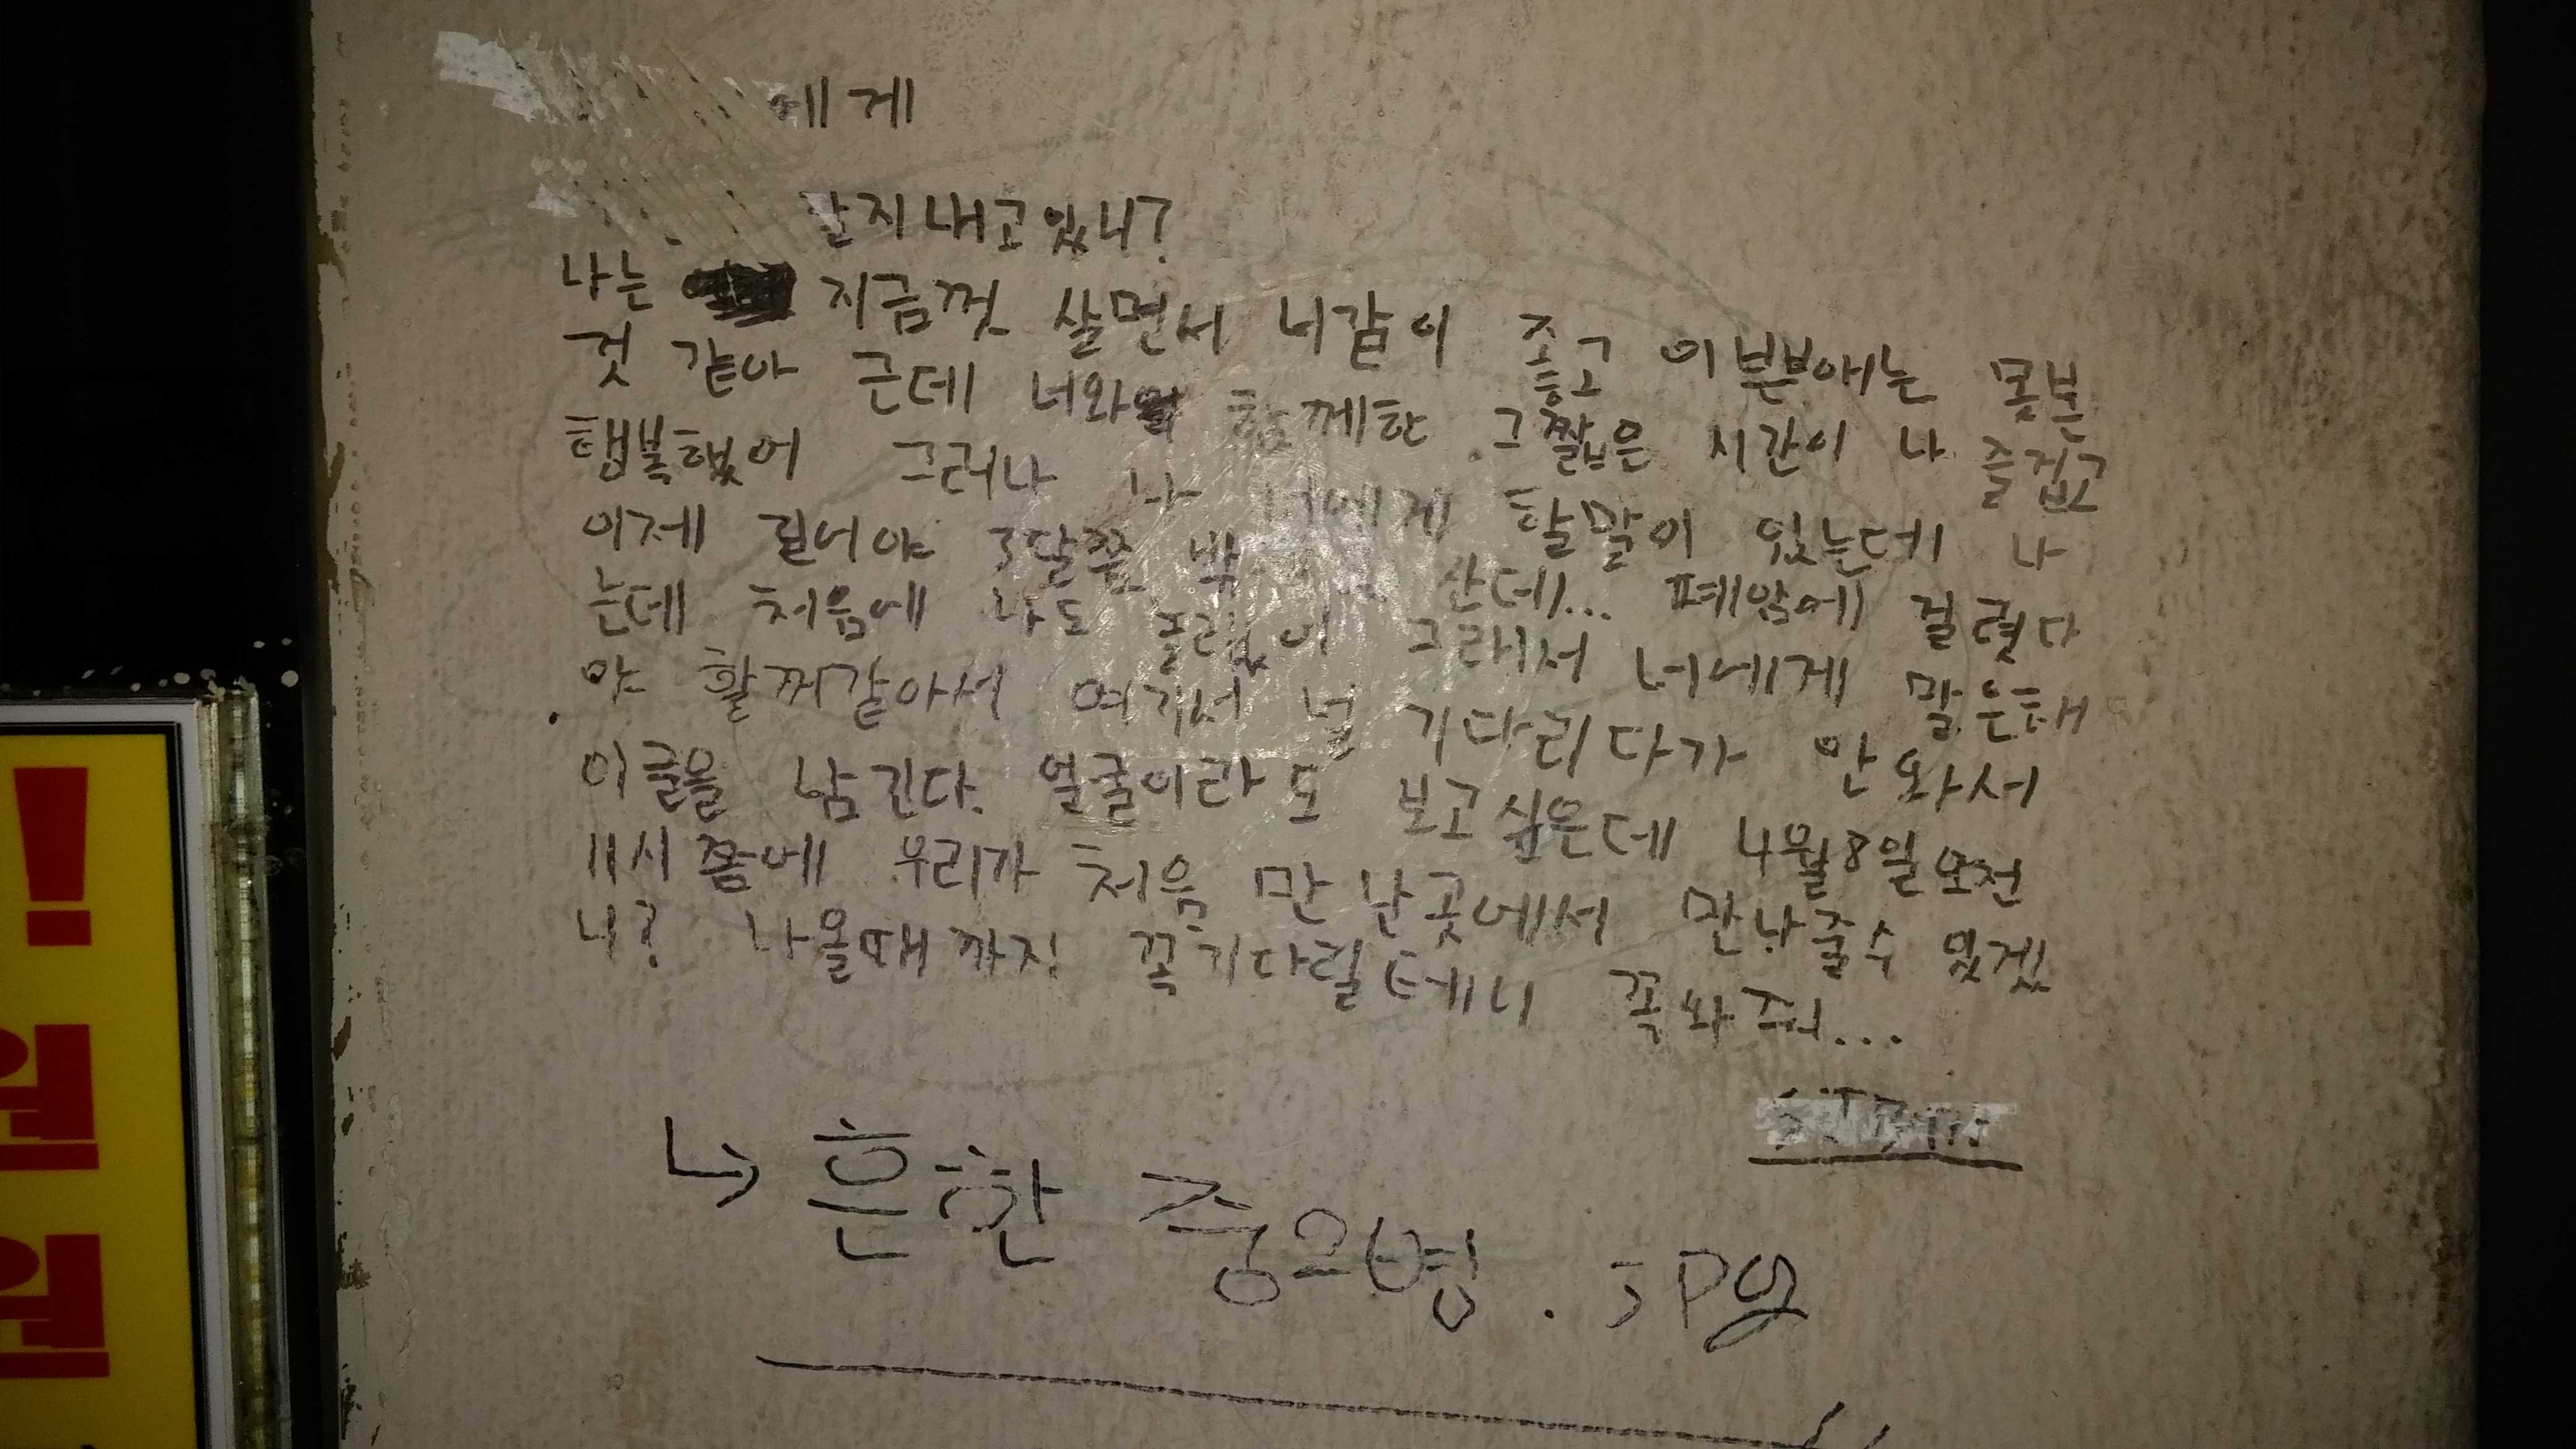 에게
잘지내고있니?
나는 지금껏 살면서 너같이 좋고 이쁜애는 못본
것 같아 근데 너와 함께한 그짧은 시간이 나 즐겁고
행복했어 그러나 나 너에게 할말이 있는데 나
이제 길어야 3달쯤 밖에 산데... 폐암에 걸렸다
는데 처음에 나도 놀랐어 그래서 너에게 말은해
야 할꺼같아서 여기서 널 기다리다가 안와서
이글을 남긴다. 얼굴이라도 보고싶은데 4월8일오전
11시쯤에 우리가 처음 만난곳에서 만나줄수 있겠
니? 나올때까지 꼭기다릴테니 꼭와줘...
흔한 중2병.jpg
!!